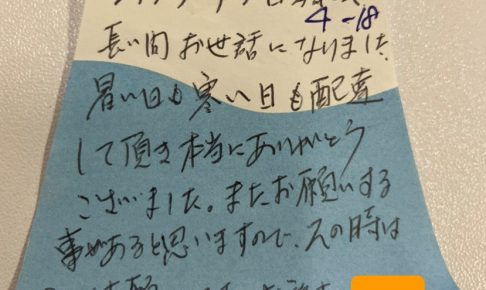 4-18
長い間お世話になりました。
暑い日も寒い日も配達
して頂き本当にありがとう
ございました。またお願いする
事があると思いますので、その時は